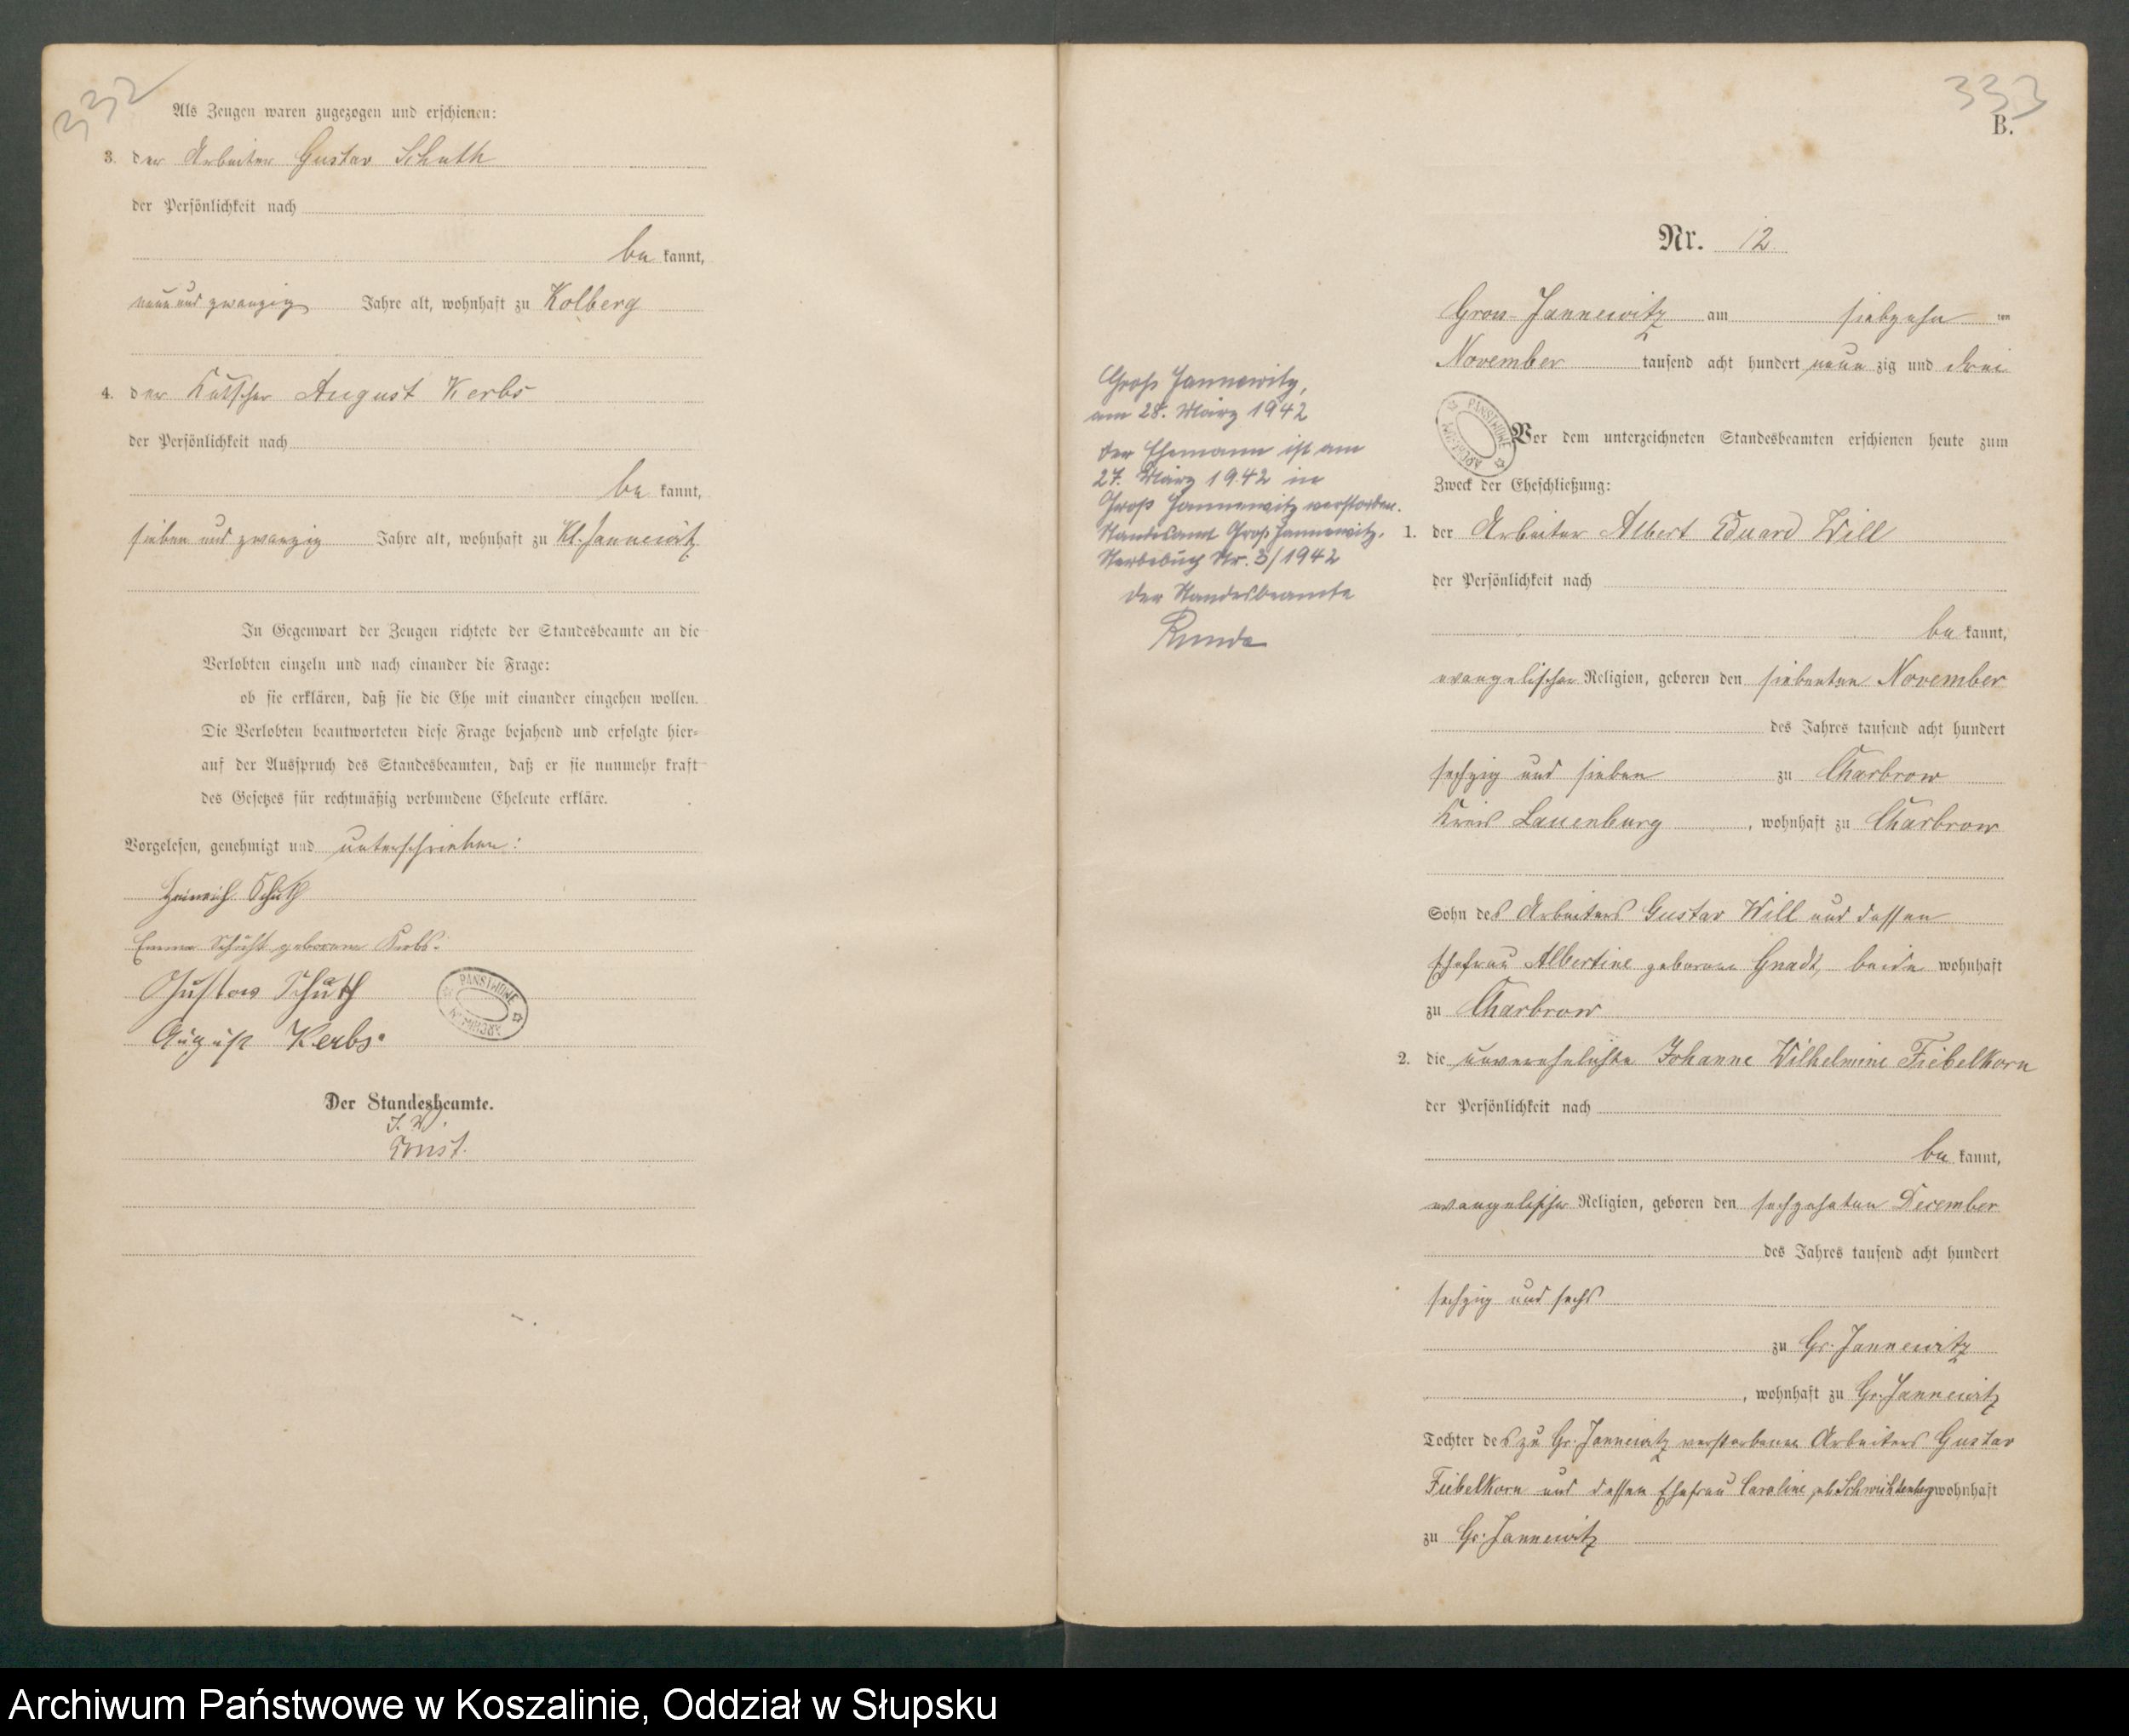 332
Als Zeugen waren zugezogen und erschienen:
3. der Arbeiter Gustav Schuth
der Persönlichkeit nach
be kannt,
neun und zwanzig Jahre alt, wohnhaft zu Kolberg
4. der Kutscher August Kerbs
der Persönlichkeit nach
be kannt,
sieben und zwanzig Jahre alt, wohnhaft zu Kl. Jannewitz
In Gegenwart der Zeugen richtete der Standesbeamte an die
Verlobten einzeln und nach einander die Frage:
ob sie erklären, daß sie die Ehe mit einander eingehen wollen.
Die Verlobten beantworteten diese Frage bejahend und erfolgte hier-
auf der Ausspruch des Standesbeamten, daß er sie nunmehr kraft
des Gesetzes für rechtmäßig verbundene Eheleute erkläre.
Vorgelesen, genehmigt und unterschrieben:
Heinrich Schuth
Emma Schuth geborene Kerbs.
Gustav Schuth
August Kerbs.
PAŃSTWOWE ARCHIWUM
Der Standesbeamte.
J. V.
Ernst.
333
B.
Nr. 12
Gross-Jannewitz am siebzehn ten
November tausend acht hundert neun zig und drei
PAŃSTWOWE ARCHIWUM
Vor dem unterzeichneten Standesbeamten erschienen heute zum
Zweck der Eheschließung:
1. der Arbeiter Albert Eduard Will
der Persönlichkeit nach
be kannt,
evangelischer Religion, geboren den siebenten November
des Jahres tausend acht hundert
sechzig und sieben zu Charbrow
Kreis Lauenburg, wohnhaft zu Charbrow
Sohn des Arbeiters Gustav Will und dessen
Ehefrau Albertine geborene Gnadt, beide wohnhaft
zu Charbrow
2. die unverehelichte Johanne Wilhelmine Fiebelkorn
der Persönlichkeit nach
be kannt,
evangelischer Religion, geboren den sechzehnten December
des Jahres tausend acht hundert
sechzig und sechs
zu Gr. Jannewitz
, wohnhaft zu Gr. Jannewitz
Tochter des zu Gr. Jannewitz verstorbenen Arbeiters Gustav
Fiebelkorn und dessen Ehefrau Caroline, geb Schwichtenberg wohnhaft
zu Gr. Jannewitz
Groß Jannewitz,
am 28. März 1942
Der Ehemann ist am
27. März 1942 in
Groß Jannewitz verstorben.
Standesamt Groß Jannewitz,
Sterbebuch Nr. 3/1942
Der Standesbeamte
Archiwum Państwowe w Koszalinie, Oddział w Słupsku